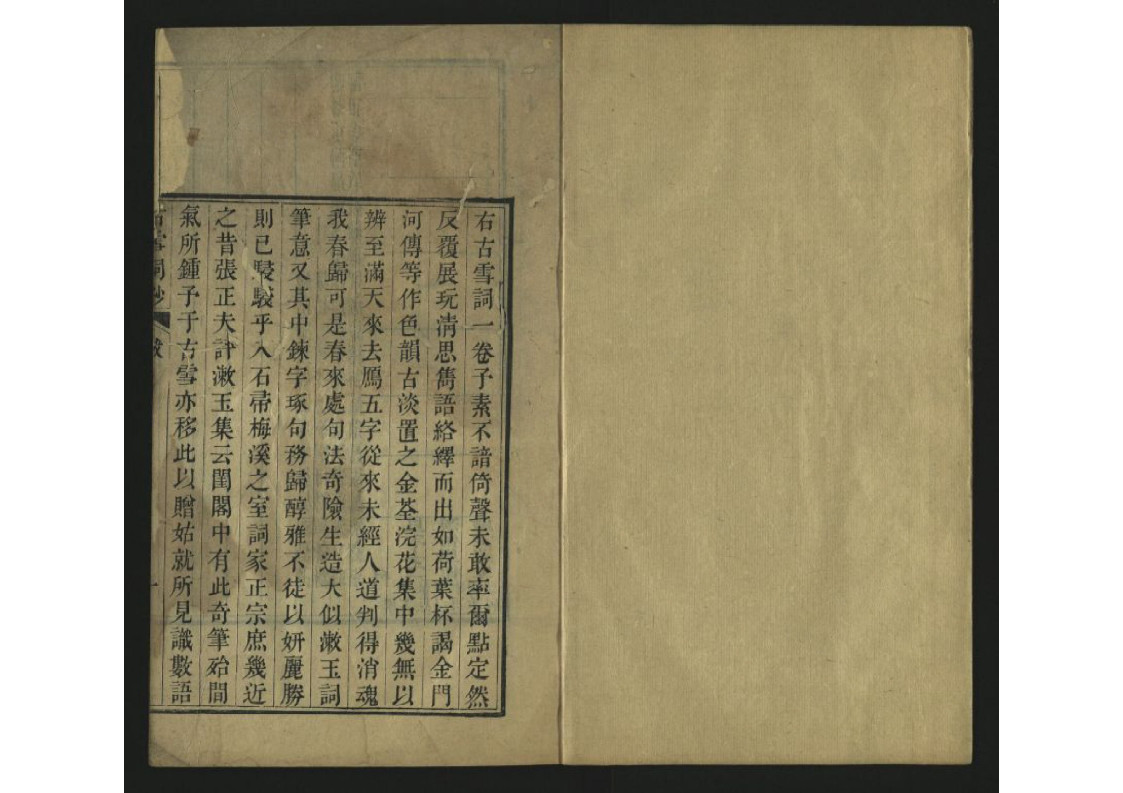 右古雪詞一卷子素不諳倚聲未敢率爾點定然
反覆展玩清思雋語絡繹而出如荷葉杯謁金門
河傳等作色韻古淡置之金荃浣花集中幾無以
辨至滿天來去鴈五字從來未經人道判得消魂
我春歸可是春來處句法奇險生造大似漱玉詞
筆意又其中鍊字琢句務歸醇雅不徒以妍麗勝
則已駸駸乎入石帚梅溪之室詞家正宗庶幾近
之昔張正夫評漱玉集云閨閣中有此奇筆殆間
氣所鍾予于古雪亦移此以贈姑就所見識數語
雪詞鈔 跋 一